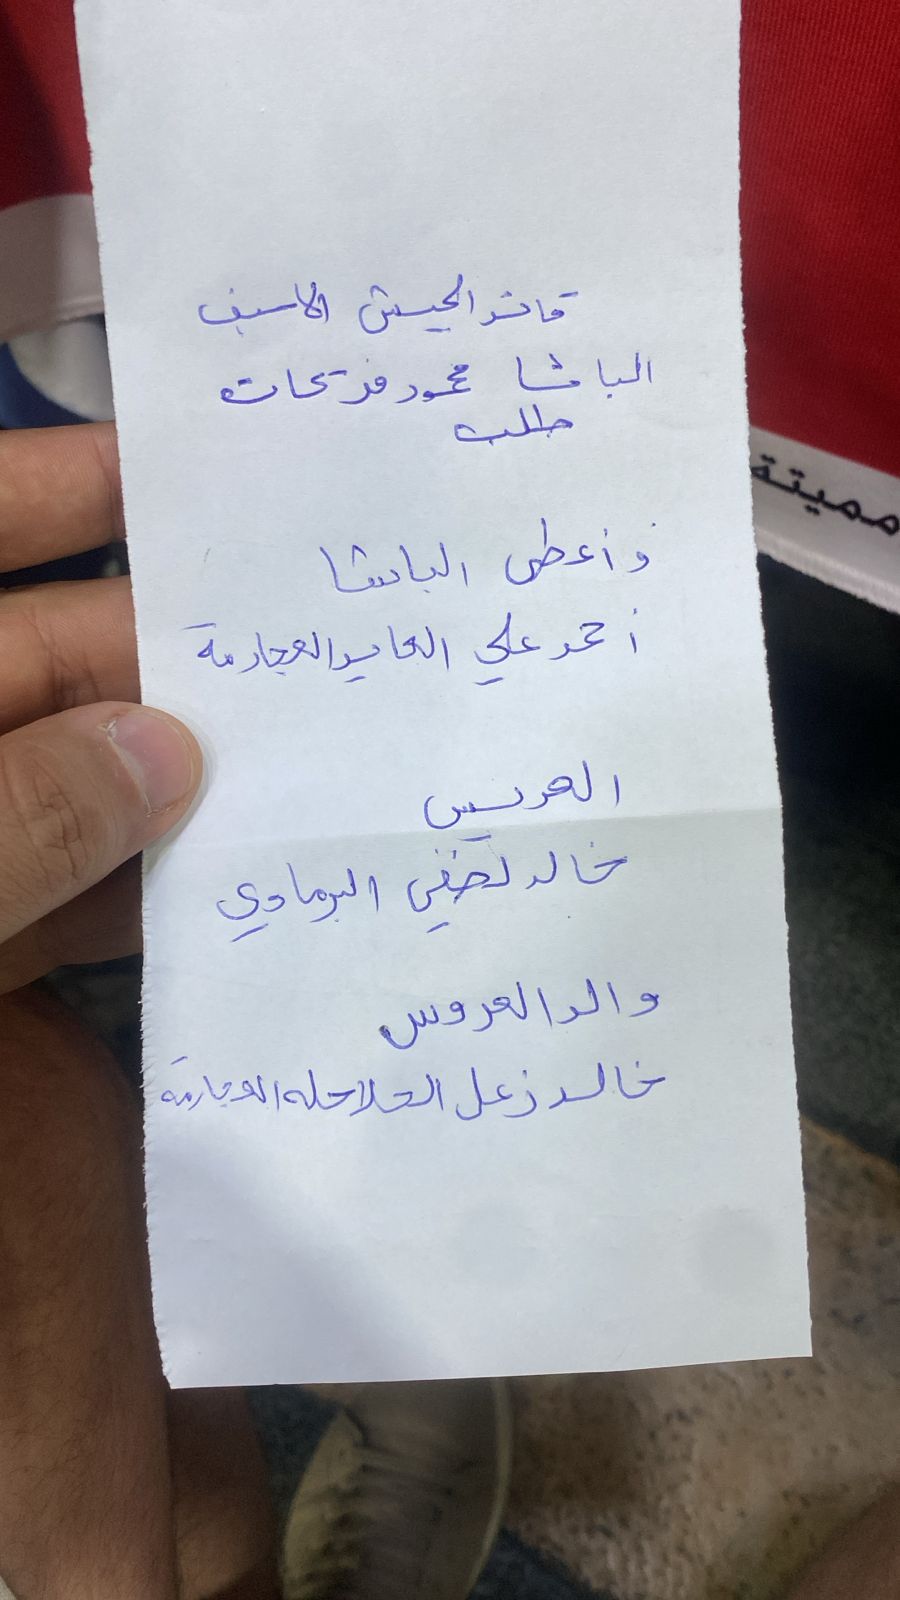 قائد الجيش الاسبق
الباشا محمود فريحات
طلب
مميتة
و أعطى الباشا
أحمد علي العايد العجارمة
العريس
خالد لطفي البرماوي
والد العروس
خالد زعل الحلاحله العجارمة